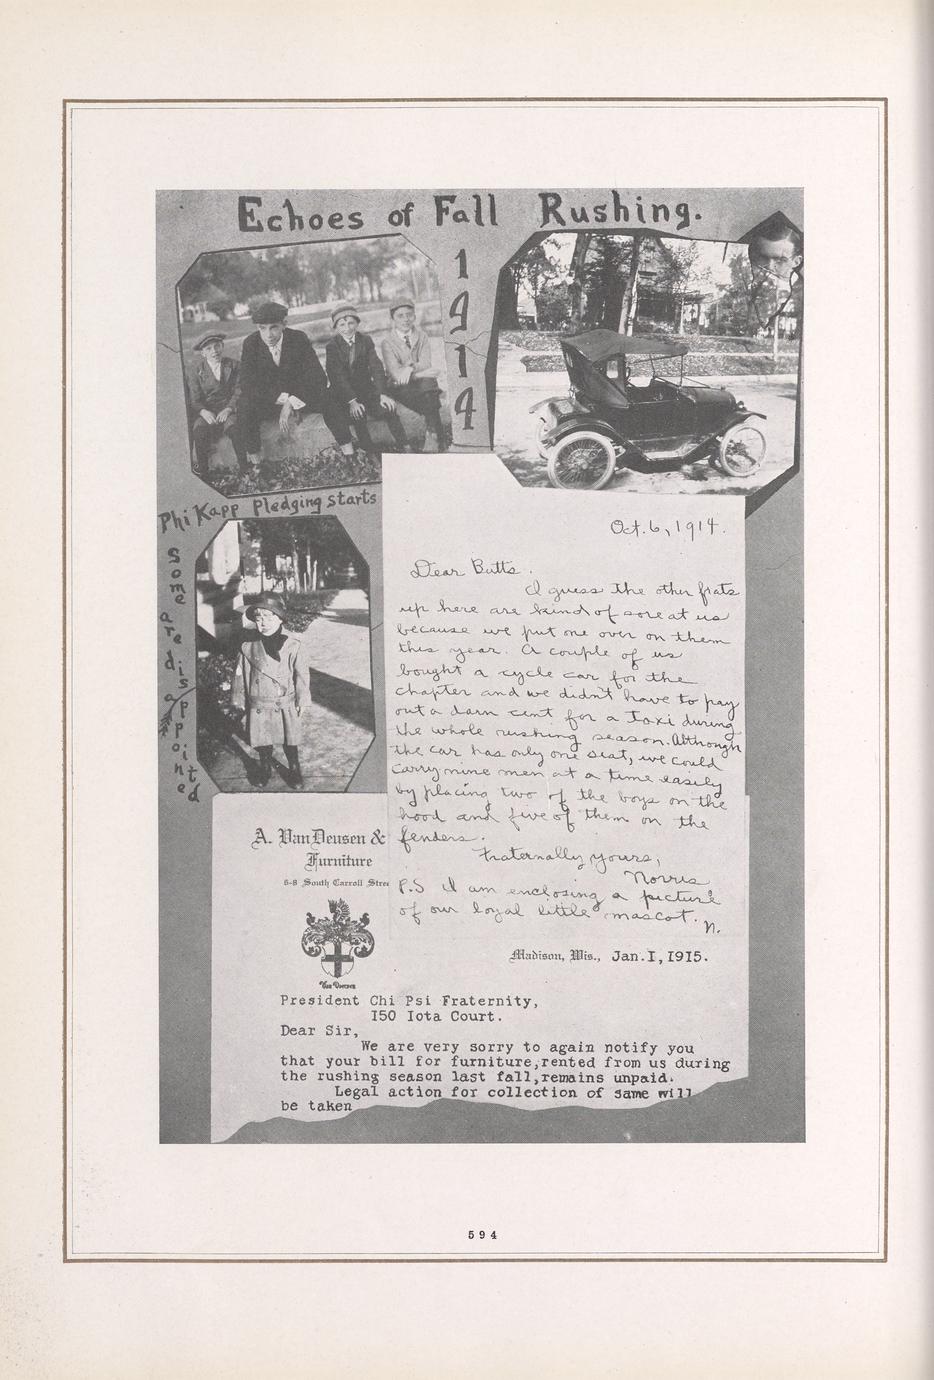 Echoes of Fall Rushing.
1914
Phi Kapp Pledging starts
Some are disappointed
Oct. 6, 1914.
Dear Butts.
I guess the other frats
up here are kind of sore at us
because we put one over on them
this year. A couple of us
bought a cycle car for the
chapter and we didn't have to pay
out a darn cent for a taxi during
the whole rushing season. Although
the car has only one seat, we could
carry nine men at a time easily
by placing two of the boys on the
hood and five of them on the
fenders.
Fraternally yours,
Norris
P.S I am enclosing a picture
of our loyal little mascot.
N.
A. VanDeusen &
Furniture
6-8 South Carroll Stree
Madison, Wis., Jan.I,I9I5.
President Chi Psi Fraternity,
I50 Iota Court.
Dear Sir,
We are very sorry to again notify you
that your bill for furniture,rented from us during
the rushing season last fall,remains unpaid.
Legal action for collection of same will
be taken
594